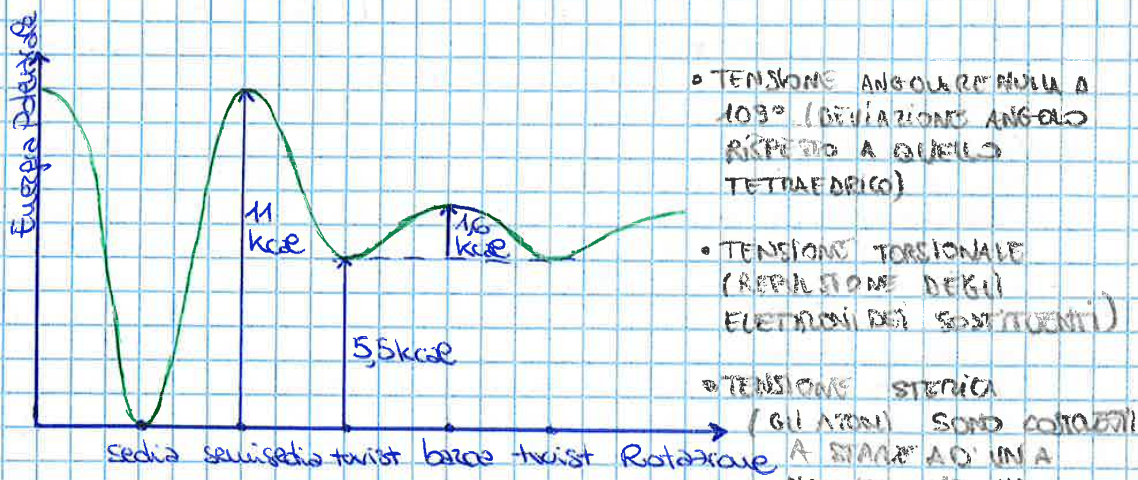 Energia Potenziale
11
kcal
1,6
kcal
5,5 kcal
sedia semisedia twist barca twist Rotazione
• TENSIONE ANGOLARE NULLA A
109° (DEVIAZIONE ANGOLO
RISPETTO A QUELLO
TETRAEDRICO)
• TENSIONE TORSIONALE
(REPULSIONE DEGLI
ELETTRONI DEI SOSTITUENTI)
• TENSIONE STERICA
(GLI ATOMI SONO COSTRETTI
A STARE AD UNA